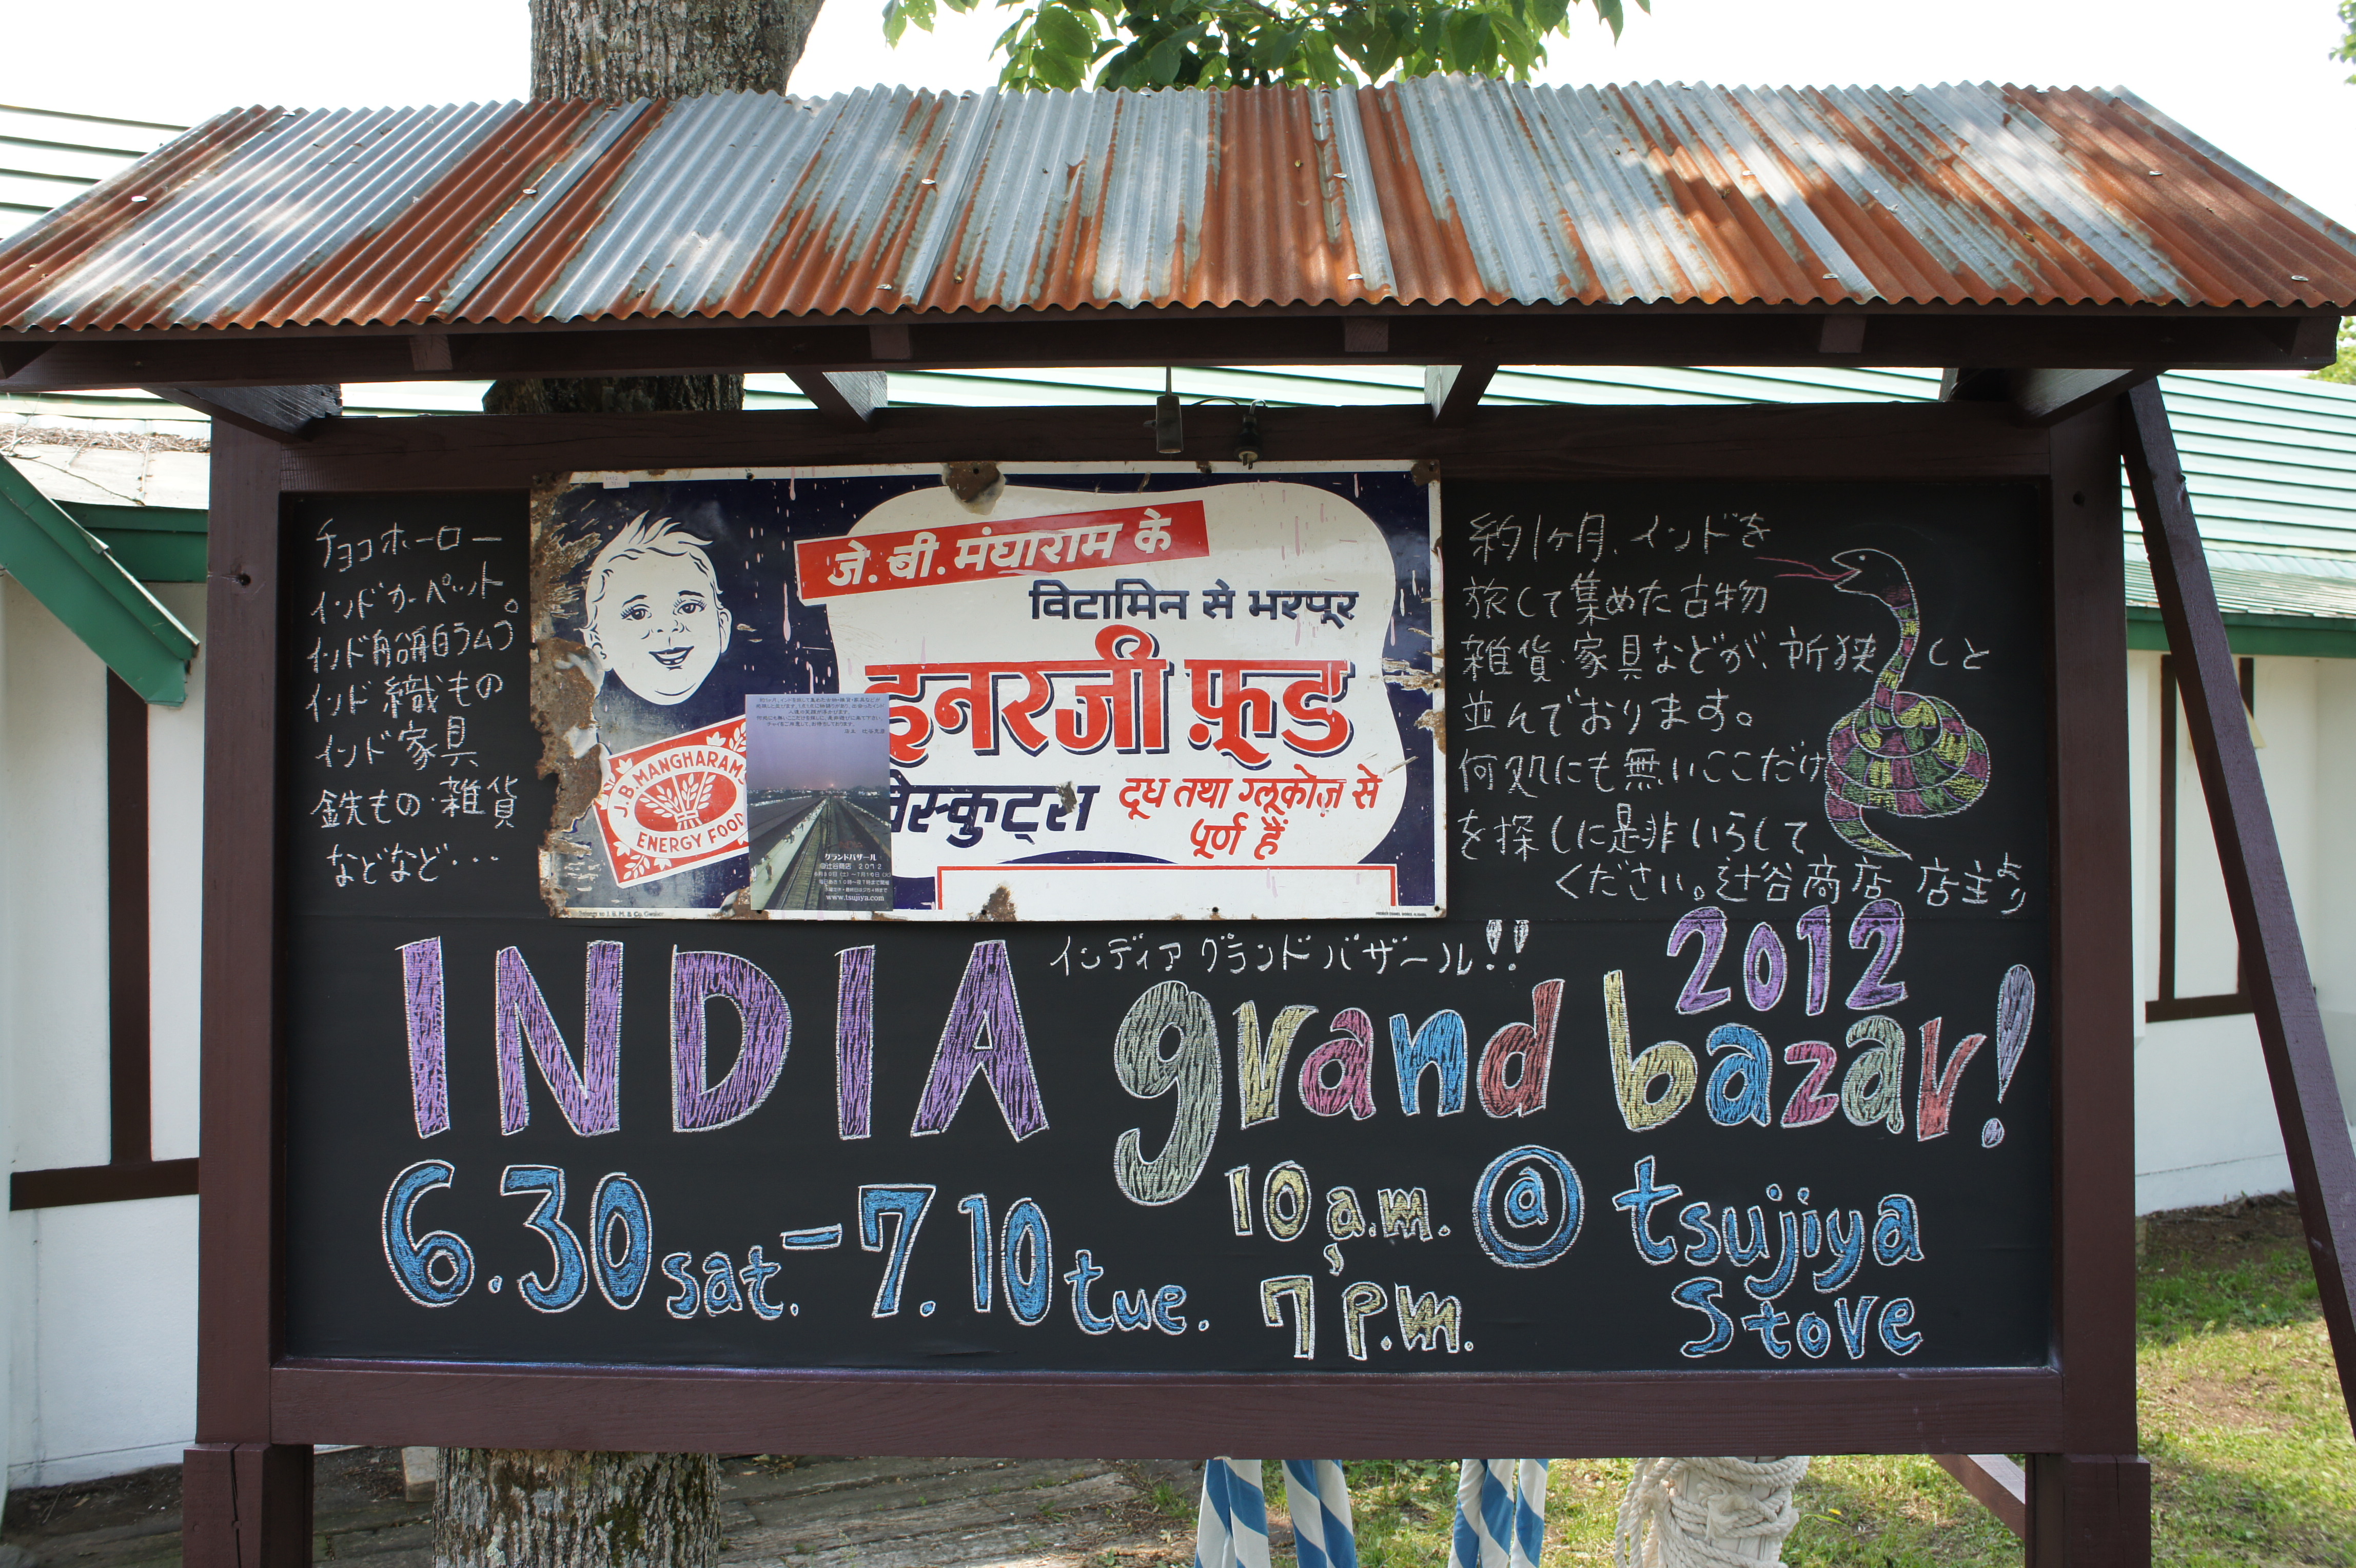 チョコホーロー
インドカーペット。
インド船舶ラムプ
インド織もの
インド家具
鉄もの・雑貨
などなど・・・
जे. बी. मंघाराम के
विटामिन से भरपूर
इनरजी फ़ूड
बिस्कुट्स
दूध तथा ग्लूकोज़ से
पूर्ण हैं
J.B. MANGHARAM
ENERGY FOOD
グランドバザール
@辻谷商店 2012
www.tsujiya.com
約1ヶ月、インドを
旅して集めた古物
雑貨・家具などが、所狭しと
並んでおります。
何処にも無いここだけ
を探しに是非いらして
ください。辻谷商店 店主より
インディアグランドバザール!!
2012
INDIA grand bazar!
6.30 sat. - 7.10 tue.
10 a.m. 〜 7 p.m.
@ tsujiya
Store